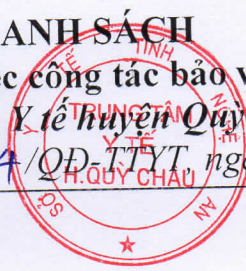 ANH SÁCH
ệc công tác bảo v
Y tế huyện Quỳ
4/QĐ-TTYT, ngà
SỞ Y TẾ TỈNH NGHỆ AN
TRUNG TÂM
Y TẾ
H.QUỲ CHÂU